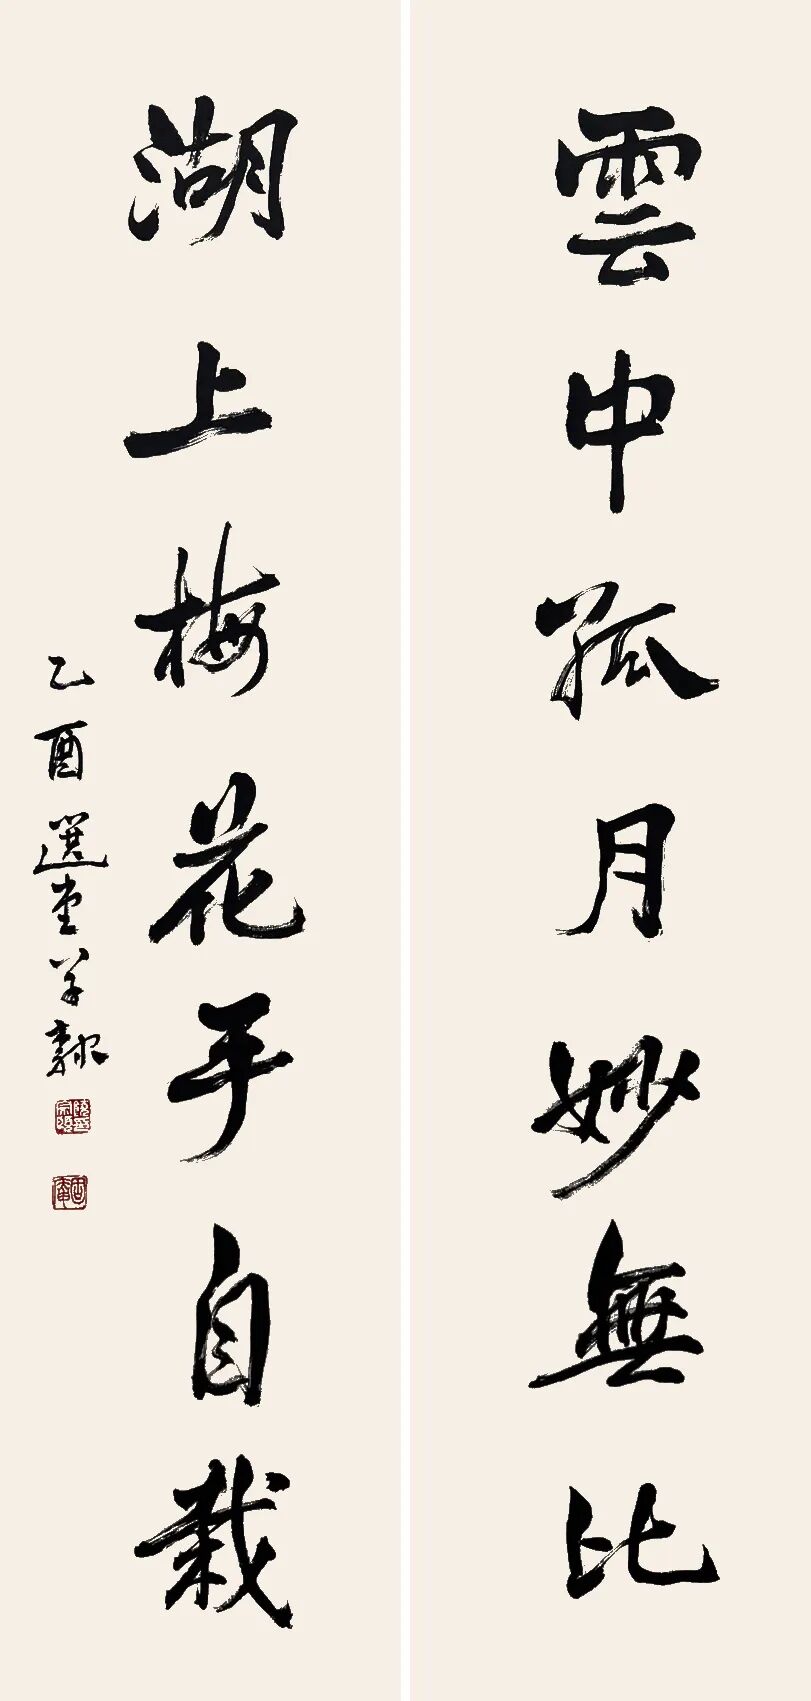 雲中孤月妙無比
湖上梅花手自栽
乙酉選堂羊豪